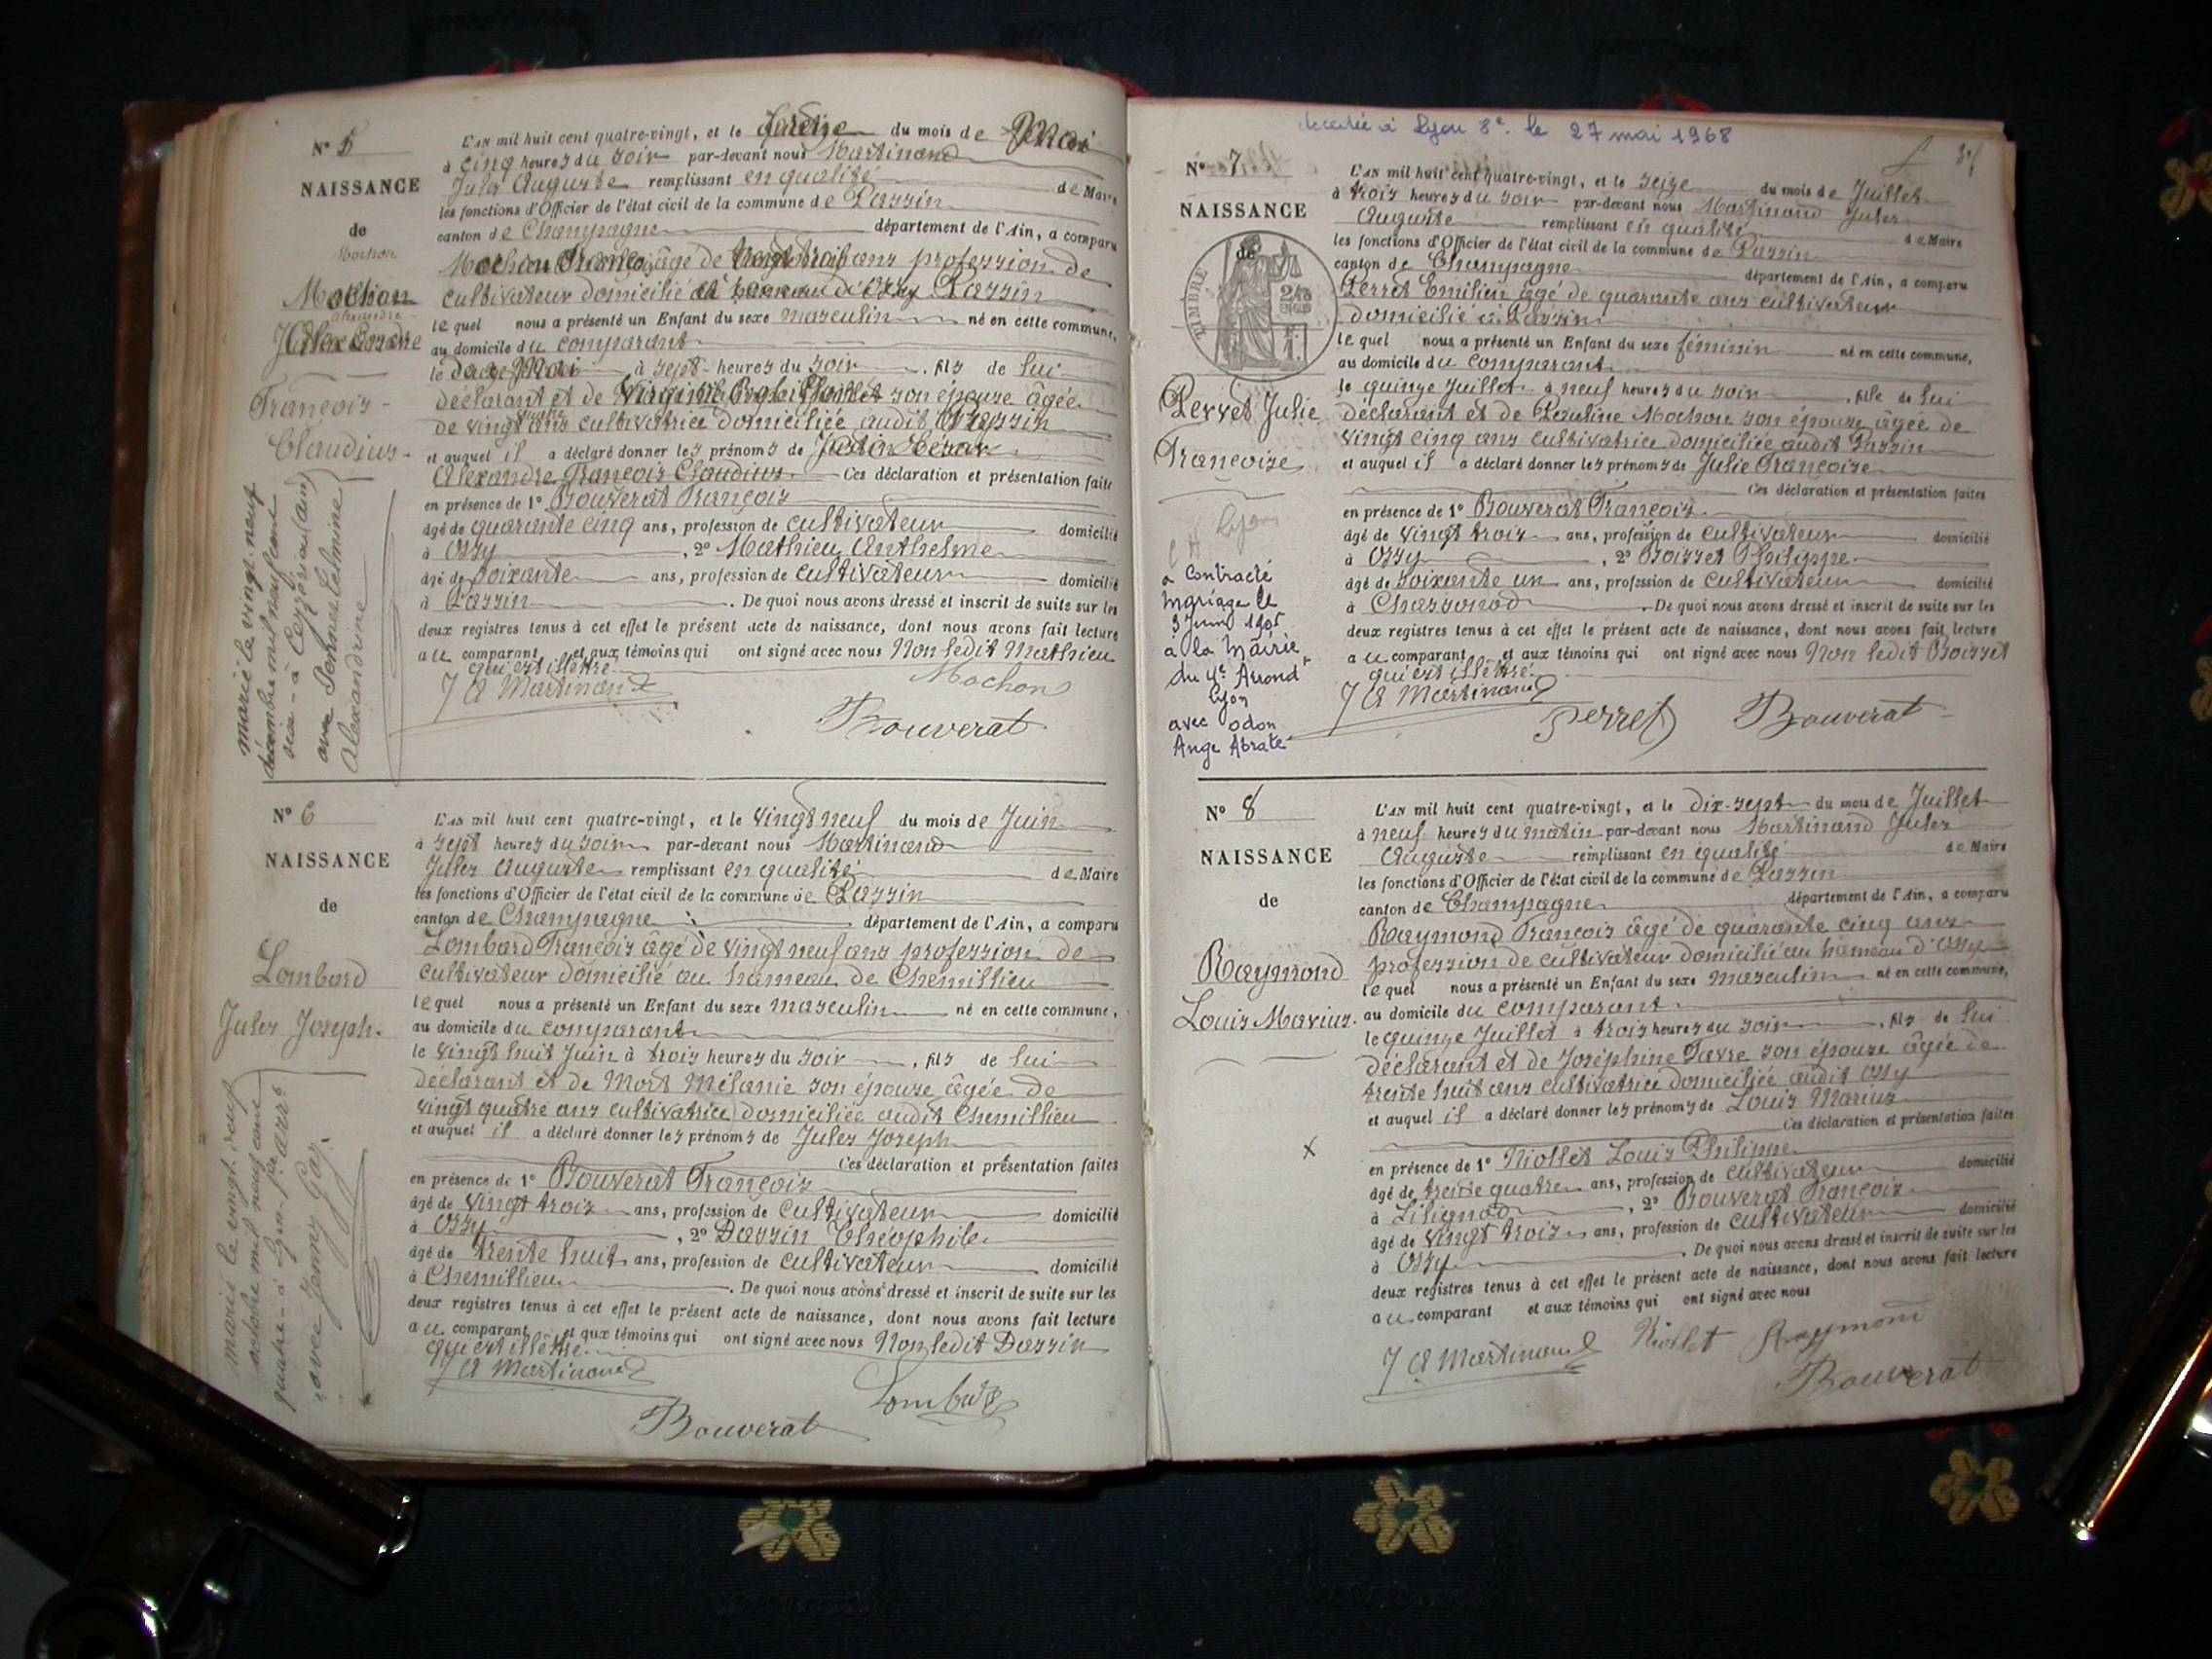 N° 5
NAISSANCE
de
Mochon
Mochon
Alexandre
François -
Claudius -
marié le vingt neuf
décembre mil neuf cent
six - à Ceyzérieu (ain)
avec
Alexandrine
L'AN mil huit cent quatre-vingt, et le du mois de Mai
à cinq heures du soir par-devant nous Martinand
Jules Auguste remplissant en qualité de Maire
les fonctions d'Officier de l'état civil de la commune de Passin
canton de Champagne département de l'Ain, a comparu
Mochon âgé de ans profession de
cultivateur domicilié Passin
lequel nous a présenté un Enfant du sexe masculin né en cette commune,
au domicile du comparant
le Mai à sept heures du soir, fils de lui
déclarant et de son épouse âgée
de vingt quatre ans cultivatrice domiciliée audit
et auquel il a déclaré donner les prénoms de
Alexandre François Claudius. Ces déclaration et présentation faite
en présence de 1° Bouverat François
âgé de quarante cinq ans, profession de cultivateur domicilié
à Ossy, 2° Mathieu Anthelme
âgé de soixante ans, profession de cultivateur domicilié
à Passin. De quoi nous avons dressé et inscrit de suite sur les
deux registres tenus à cet effet le présent acte de naissance, dont nous avons fait lecture
au comparant et aux témoins qui ont signé avec nous Non ledit Mathieu
qui est illettré.
J A Martinand Mochon
Bouverat
N° 6
NAISSANCE
de
Lombard
Jules Joseph.
marié le vingt neuf
octobre mil neuf cent
quatre - à Lyon - 1er arrt
avec Jenny Gay.
L'AN mil huit cent quatre-vingt, et le vingt neuf du mois de Juin
à sept heures du soir par-devant nous Martinand
Jules Auguste remplissant en qualité de Maire
les fonctions d'Officier de l'état civil de la commune de Passin
canton de Champagne département de l'Ain, a comparu
Lombard François âgé de vingt neuf ans profession de
cultivateur domicilié au hameau de Chemillieu
lequel nous a présenté un Enfant du sexe masculin né en cette commune,
au domicile du comparant
le vingt huit Juin à trois heures du soir, fils de lui
déclarant et de Mort Mélanie son épouse âgée de
vingt quatre ans cultivatrice domiciliée audit Chemillieu
et auquel il a déclaré donner les prénoms de Jules Joseph
Ces déclaration et présentation faites
en présence de 1° Bouverat François
âgé de vingt trois ans, profession de cultivateur domicilié
à Ossy, 2° Dassin Théophile
âgé de trente huit ans, profession de cultivateur domicilié
à Chemillieu. De quoi nous avons dressé et inscrit de suite sur les
deux registres tenus à cet effet le présent acte de naissance, dont nous avons fait lecture
au comparant et aux témoins qui ont signé avec nous Non ledit Dassin
qui est illettré.
J A Martinand
Lombard
Bouverat
décédée à Lyon 8e. le 27 mai 1968
N° 7
NAISSANCE
de
TIMBRE
Perret Julie
Françoise
Lyon
a contracté
mariage le
3 Juin 1905
a la Mairie
du 4e Arrond
Lyon
avec Odon
Ange Abrate
L'AN mil huit cent quatre-vingt, et le seize du mois de Juillet
à trois heures du soir par-devant nous Martinand Jules
Auguste remplissant en qualité de Maire
les fonctions d'Officier de l'état civil de la commune de Passin
canton de Champagne département de l'Ain, a comparu
Perret Emilien âgé de quarante ans cultivateur
domicilié à Passin
lequel nous a présenté un Enfant du sexe féminin né en cette commune,
au domicile du comparant
le quinze Juillet à neuf heures du soir, fille de lui
déclarant et de Pauline Mochon son épouse âgée de
vingt cinq ans cultivatrice domiciliée audit Passin
et auquel il a déclaré donner les prénoms de Julie Françoise
Ces déclaration et présentation faites
en présence de 1° Bouverat François
âgé de vingt trois ans, profession de cultivateur domicilié
à Ossy, 2° Boisset Philippe
âgé de soixante un ans, profession de cultivateur domicilié
à Chassonod. De quoi nous avons dressé et inscrit de suite sur les
deux registres tenus à cet effet le présent acte de naissance, dont nous avons fait lecture
au comparant et aux témoins qui ont signé avec nous Non ledit Boisset
qui est illettré.
J A Martinand
Perret Bouverat
N° 8
NAISSANCE
de
Raymond
Louis Marius.
X
L'AN mil huit cent quatre-vingt, et le dix-sept du mois de Juillet
à neuf heures du matin par-devant nous Martinand Jules
Auguste remplissant en qualité de Maire
les fonctions d'Officier de l'état civil de la commune de Passin
canton de Champagne département de l'Ain, a comparu
Raymond François âgé de quarante cinq ans
profession de cultivateur domicilié au hameau d'Ossy
lequel nous a présenté un Enfant du sexe masculin né en cette commune,
au domicile du comparant
le quinze Juillet à trois heures du soir, fils de lui
déclarant et de Joséphine Favre son épouse âgée de
trente huit ans cultivatrice domiciliée audit Ossy
et auquel il a déclaré donner les prénoms de Louis Marius
Ces déclaration et présentation faites
en présence de 1° Niollet Louis Philippe
âgé de trente quatre ans, profession de cultivateur domicilié
à Lilignod, 2° Bouverat François
âgé de vingt trois ans, profession de cultivateur domicilié
à Ossy. De quoi nous avons dressé et inscrit de suite sur les
deux registres tenus à cet effet le présent acte de naissance, dont nous avons fait lecture
au comparant et aux témoins qui ont signé avec nous
J A Martinand Niollet Raymond
Bouverat